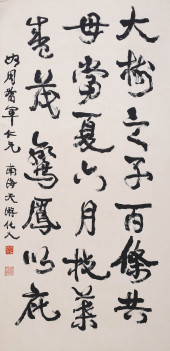 大樹之子百條共
母當夏六月枝葉
盛茂鸞鳳以庇
周督軍仁兄 南海天游化人